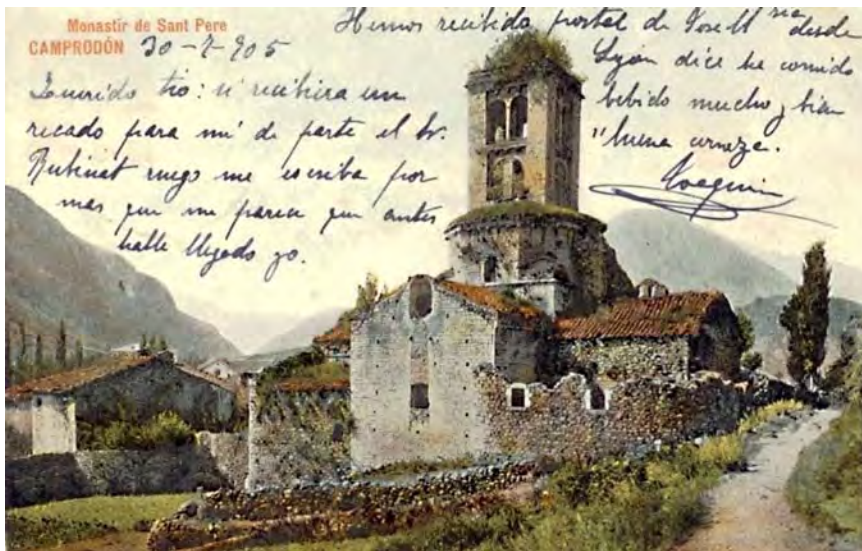 Monastir de Sant Pere
CAMPRODÓN
30-7-905
Querido tio: si recibiera un
recado para mi de parte el Sr.
Rubinat ruego me escriba por
mas que me parece que antes
halle llegado yo.
Hemos recibido postal de desde
Lyón dice he comido
bebido mucho y bien
"buena cerveza.
Joaquin